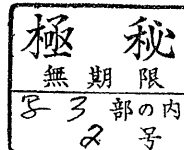 極秘
無期限
写3部の内
2号